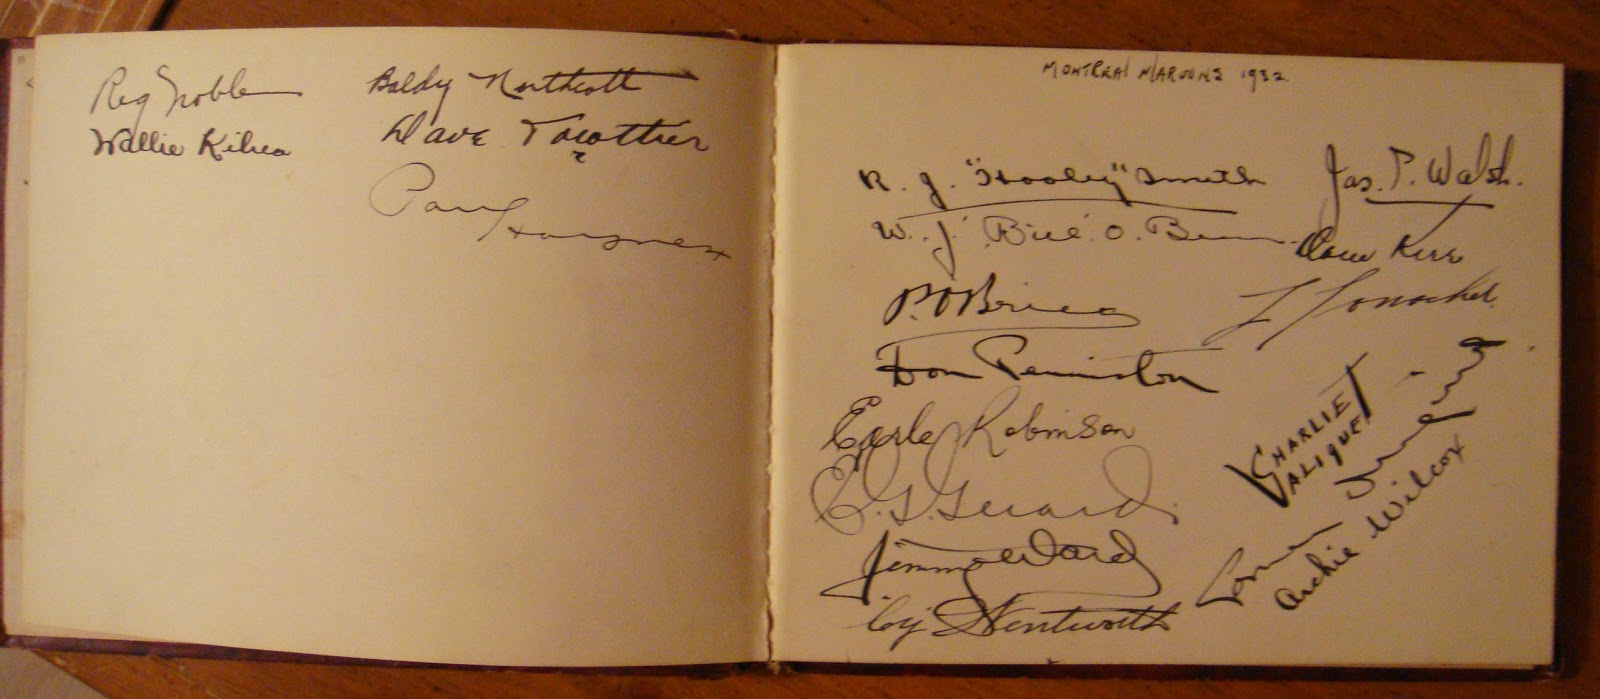 Reg Noble
Wallie Kilrea
Baldy Northcott
Dave Trottier
Paul Haynes
MONTREAL MAROONS 1932
R. J. "Hooley" Smith
W. J. 'Bill' O. Brien
P. O'Brien
Don Penniston
Earle Robinson
E. G. Gerard
Jimmy Ward
Cy Wentworth
Jas. P. Walsh.
Dave Kerr
CHARLIE
Archie Wilcox